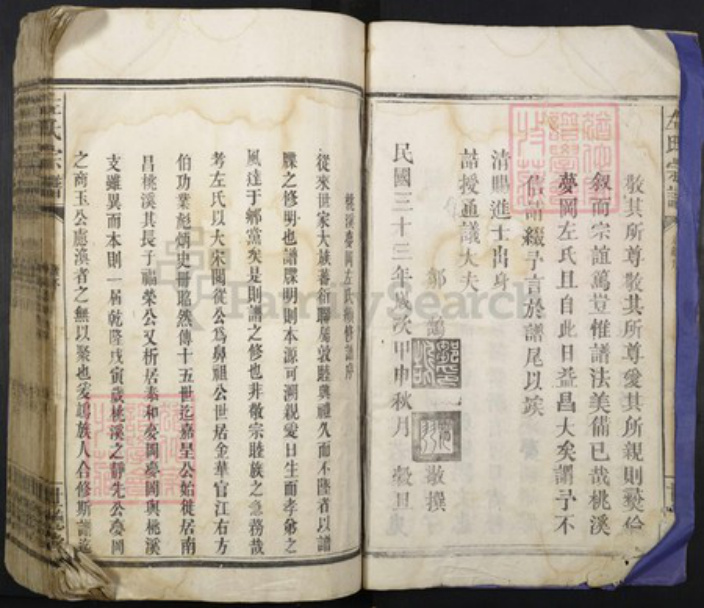 敬其所尊敬其所尊愛其所親則彛倫
叙而宗誼篤豈惟譜法美備已哉桃溪
夢岡左氏且自此日益昌大矣謂予不
信請綴予言於譜尾以竢
清賜進士出身
誥授通議大夫
鄒 敬撰
民國三十三年歲次甲申秋月 穀旦
桃溪夢岡左氏續修譜序
從來世家大族蕃衍聯屬敦睦興禮久而不墜者以譜
牒之修明也譜牒明則本源可溯親愛日生而孝弟之
風達于鄉黨矣是則譜之修也非敬宗睦族之急務哉
考左氏以大宋閣從公爲鼻祖公世居金華官江右方
伯功業彪炳史冊昭然傳十五世迄嘉呈公始徙居南
昌桃溪其長子福榮公又析居泰和夢岡夢岡與桃溪
支雖異而本則一居乾隆戊寅歲桃溪之靜先公夢岡
之商玉公慮渙者之無以聚也爰鳩族人合修斯譜迄
左氏宗譜
FamilySearch